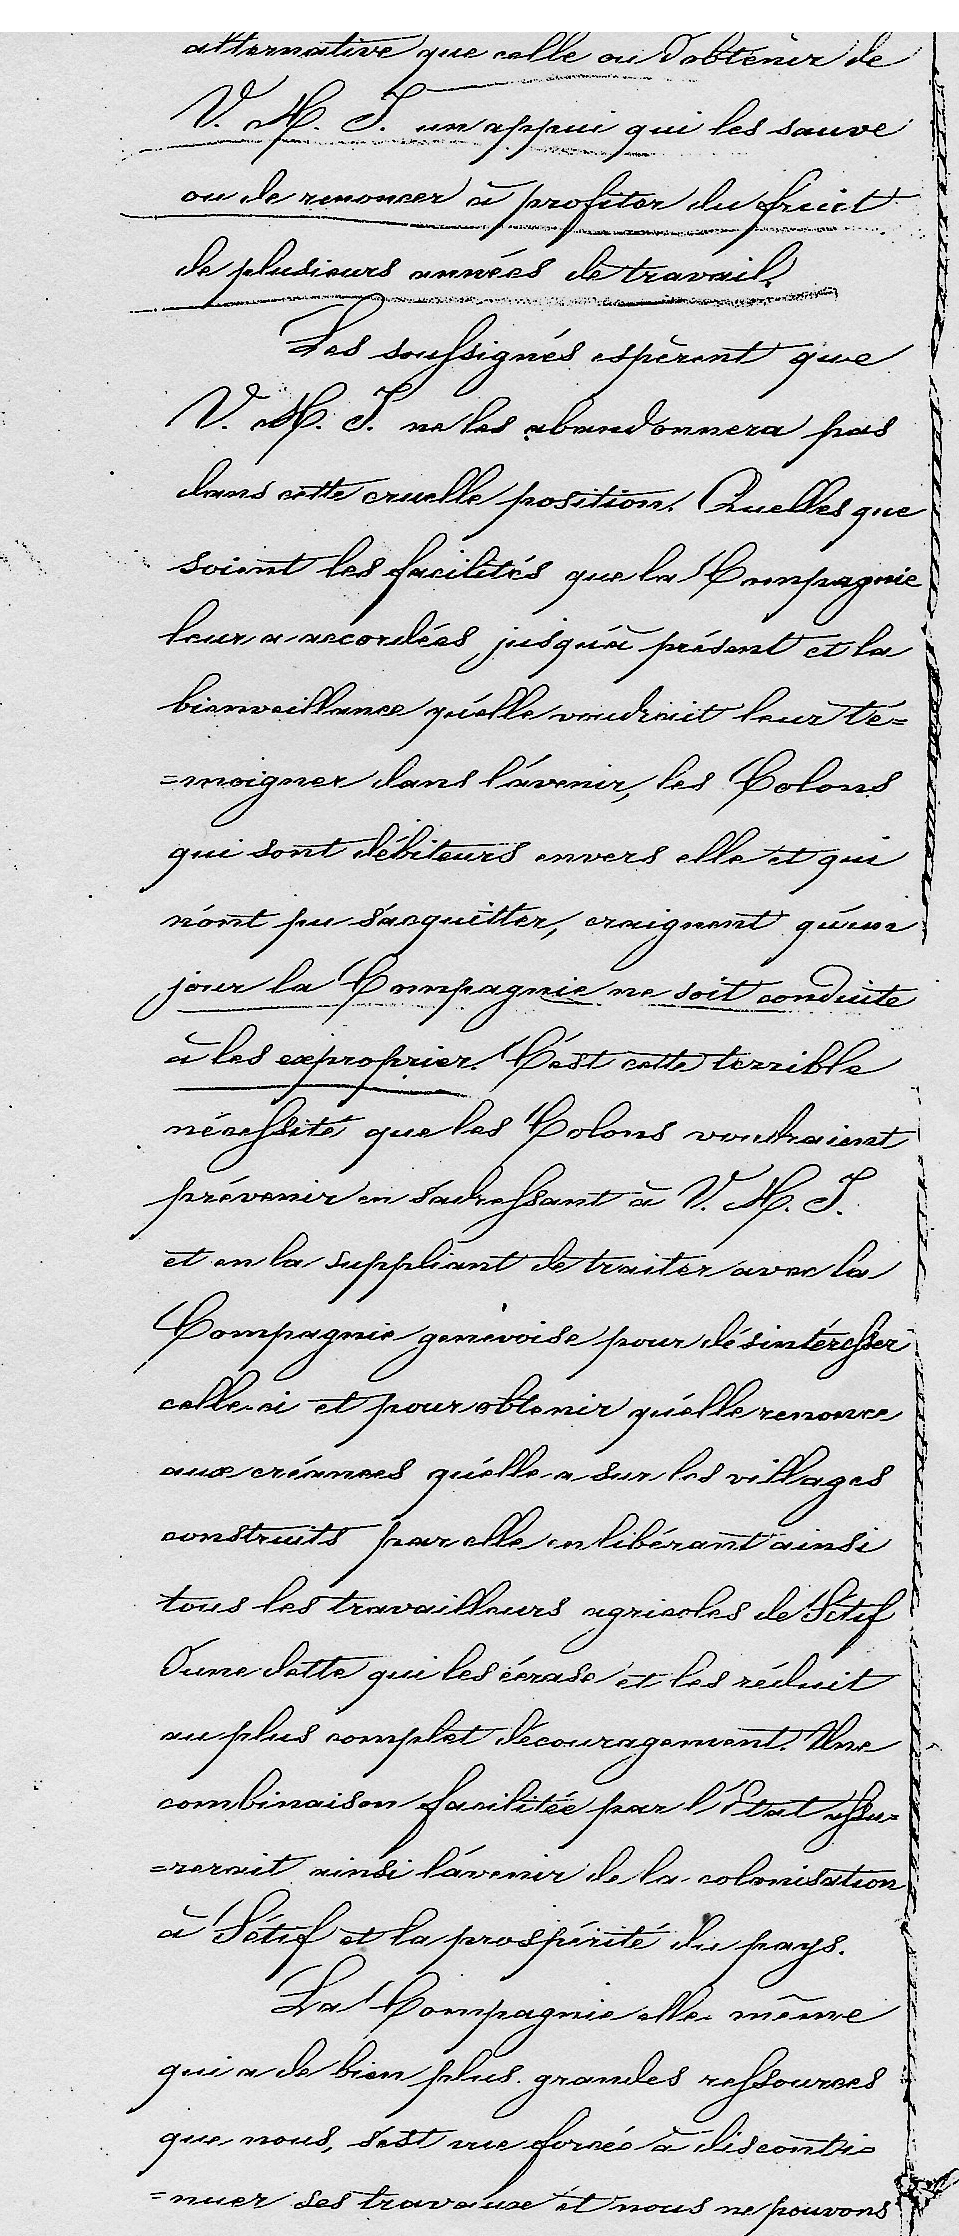 alternative que celle ou d'obtenir de
V. M. I. un appui qui les sauve
ou de renoncer à profiter du fruit
de plusieurs années de travail.
Les soussignés espèrent que
V. M. I. ne les abandonnera pas
dans cette cruelle position. Quelles que
soient les facilités que la Compagnie
leur a accordées jusqu'à présent et la
bienveillance qu'elle voudrait leur té=
=moigner dans l'avenir, les Colons
qui sont débiteurs envers elle et qui
n'ont pu s'acquitter, craignent qu'un
jour la Compagnie ne soit conduite
à les exproprier. C'est cette terrible
nécessité que les Colons voudraient
prévenir en s'adressant à V. M. I.
et en la suppliant de traiter avec la
Compagnie genevoise pour désintéresser
celle-ci et pour obtenir qu'elle renonce
aux créances qu'elle a sur les villages
construits par elle en libérant ainsi
tous les travailleurs agricoles de Sétif
d'une dette qui les écrase et les réduit
au plus complet découragement. Une
combinaison facilitée par l'État assu=
=rerait ainsi l'avenir de la colonisation
à Sétif et la prospérité du pays.
La Compagnie elle-même
qui a de bien plus grandes ressources
que nous, s'est vue forcée à disconti=
=nuer ses travaux et nous ne pouvons